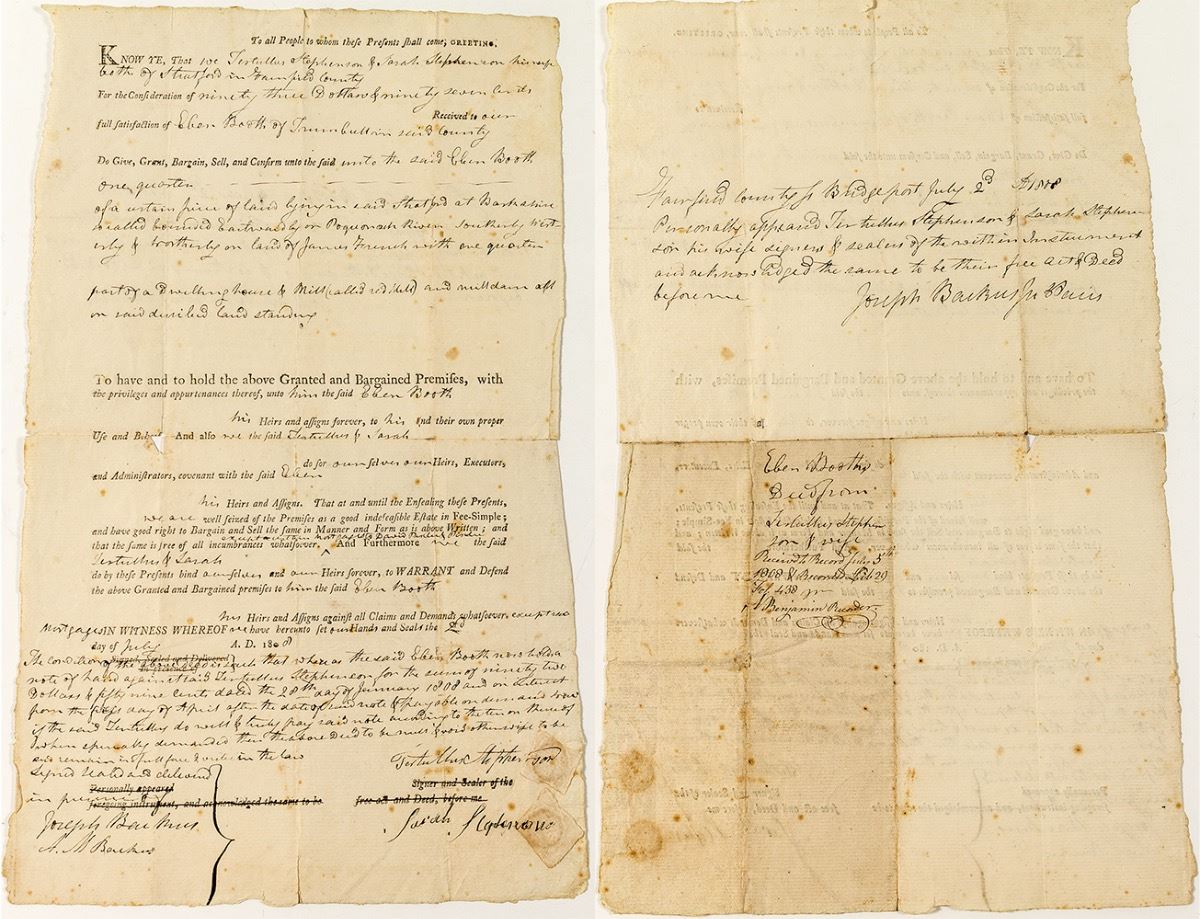 To all People to whom these Presents shall come, GREETING.
KNOW YE, That we Tertullus Stephenson & Sarah Stephenson his wife
both of Stratford in Fairfield County
For the Consideration of ninety three Dollars & ninety seven Cents
Received to our
full satisfaction of Eben Booth of Trumbull in said County
Do Give, Grant, Bargain, Sell, and Confirm unto the said unto the said Eben Booth
one quarter
of a certain piece of land lying in said Stratford at Berkshire
so called bounded Eastwardly on Poquonah River Southerly West
erly & Northerly on land of James French with one quarter
part of a Dwelling house & Mill (called red Mill) and milldam all
on said described Land standing
To have and to hold the above Granted and Bargained Premises, with
the privileges and appurtenances thereof, unto him the said Eben Booth
his Heirs and assigns forever, to his and their own proper
Use and Behoof. And also we the said Tertullus & Sarah
do for ourselves our Heirs, Executors,
and Administrators, covenant with the said Eben
his Heirs and Assigns. That at and until the Ensealing these Presents,
we are well seized of the Premises as a good indefeasible Estate in Fee-Simple;
and have good right to Bargain and Sell the same in Manner and Form as is above Written; and
except a certain Mortgage to David
that the same is free of all incumbrances whatsoever. And Furthermore we the said
Tertullus & Sarah
do by these Presents bind ourselves and our Heirs forever, to WARRANT and Defend
the above Granted and Bargained premises to him the said Eben Booth
his Heirs and Assigns against all Claims and Demands whatsoever, except said
Mortgages IN WITNESS WHEREOF we have hereunto set our Hands and Seals the 2d
day of July A. D. 1808
Signed, Sealed and Delivered
in presence of
The condition of the above Deed is such that whereas the said Eben Booth now holds a
note of hand against said Tertullus Stephenson for the sum of ninety two
Dollars & fifty nine Cents dated the 28th day of January 1808 and on interest
from the first day of April after the date of said note & payable on demand now
if the said Tertullus do well & truly pay said note according to the tenor thereof
when specially demanded then the above Deed to be null & void otherwise to be
and remain in full force & virtue in the law
Signed Sealed and delivered
Tertullus Stephenson
Personally appeared Signer and Sealer of the
in presence of
foregoing instrument, and acknowledged the same to be free act and Deed, before me
Joseph Backus
Sarah Stephenson
A. M Backus
Fairfield County ss Bridgeport July 2d AD 1808
Personally appeared Tertullus Stephenson & Sarah Stephen
son his wife signers & sealers of the within Instrument
and acknowledged the same to be their free act & Deed
before me Joseph Backus Jus Pacis
Eben Booths
Deed from
Tertullus Stephen
son & wife
Received to Record July 5th
1808 & Recorded Lib 29
Fol. 438 pr
Benjamin